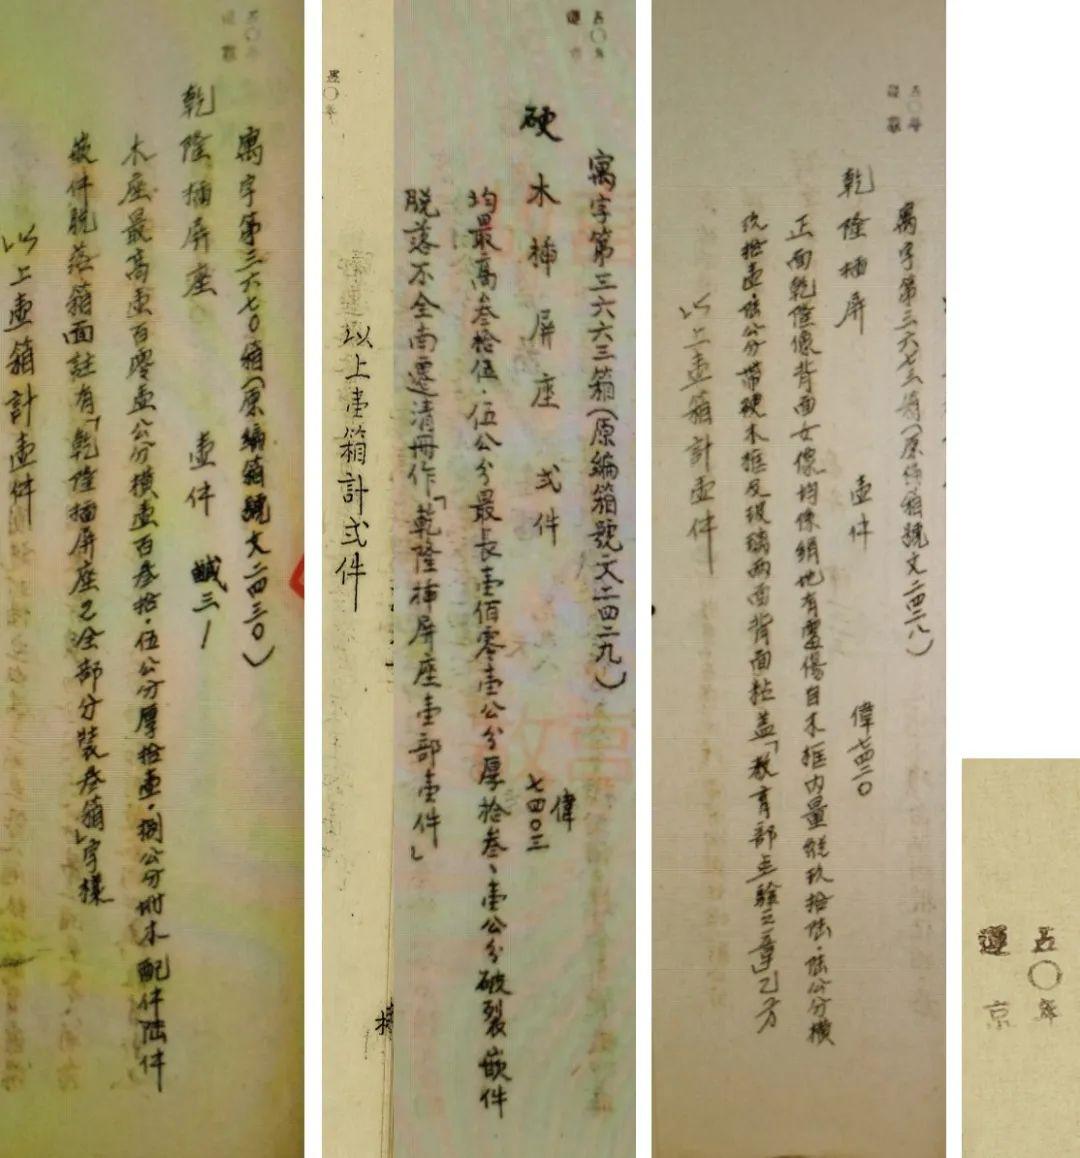 五〇年
還京
寓字第三六七〇箱（原編箱號文二四三〇）
乾隆插屏座 壹件 鹹三〡
木座最高壹百零壹公分橫壹百叁拾·伍公分厚拾壹·捌公分附木配件陆件
嵌件脫落箱面註有「乾隆插屏座乙全部分裝叁箱」字樣
以上壹箱計壹件
五〇年
還京
寓字第三六六三箱（原編箱號文二四二九）
硬木揷屏座 弍件 偉七四〇三
均最高叁拾伍·伍公分最長壹佰零壹公分厚拾叁、壹公分破裂嵌件
脱落不全南遷清册作「乾隆揷屏座壹部壹件」
以上壹箱計弍件
五〇年
還京
寓字第三六七三箱（原編箱號文二四二八）
乾隆插屏 壹件 偉七四二〇
正面乾隆像背面女像均係絹地有重傷自木框内量縱玖拾陆·陆公分橫
玖拾壹·陆公分帶硬木框及玻璃兩面背面粘盖「教育部点驗之章」乙方
以上壹箱計壹件
五〇年
還京